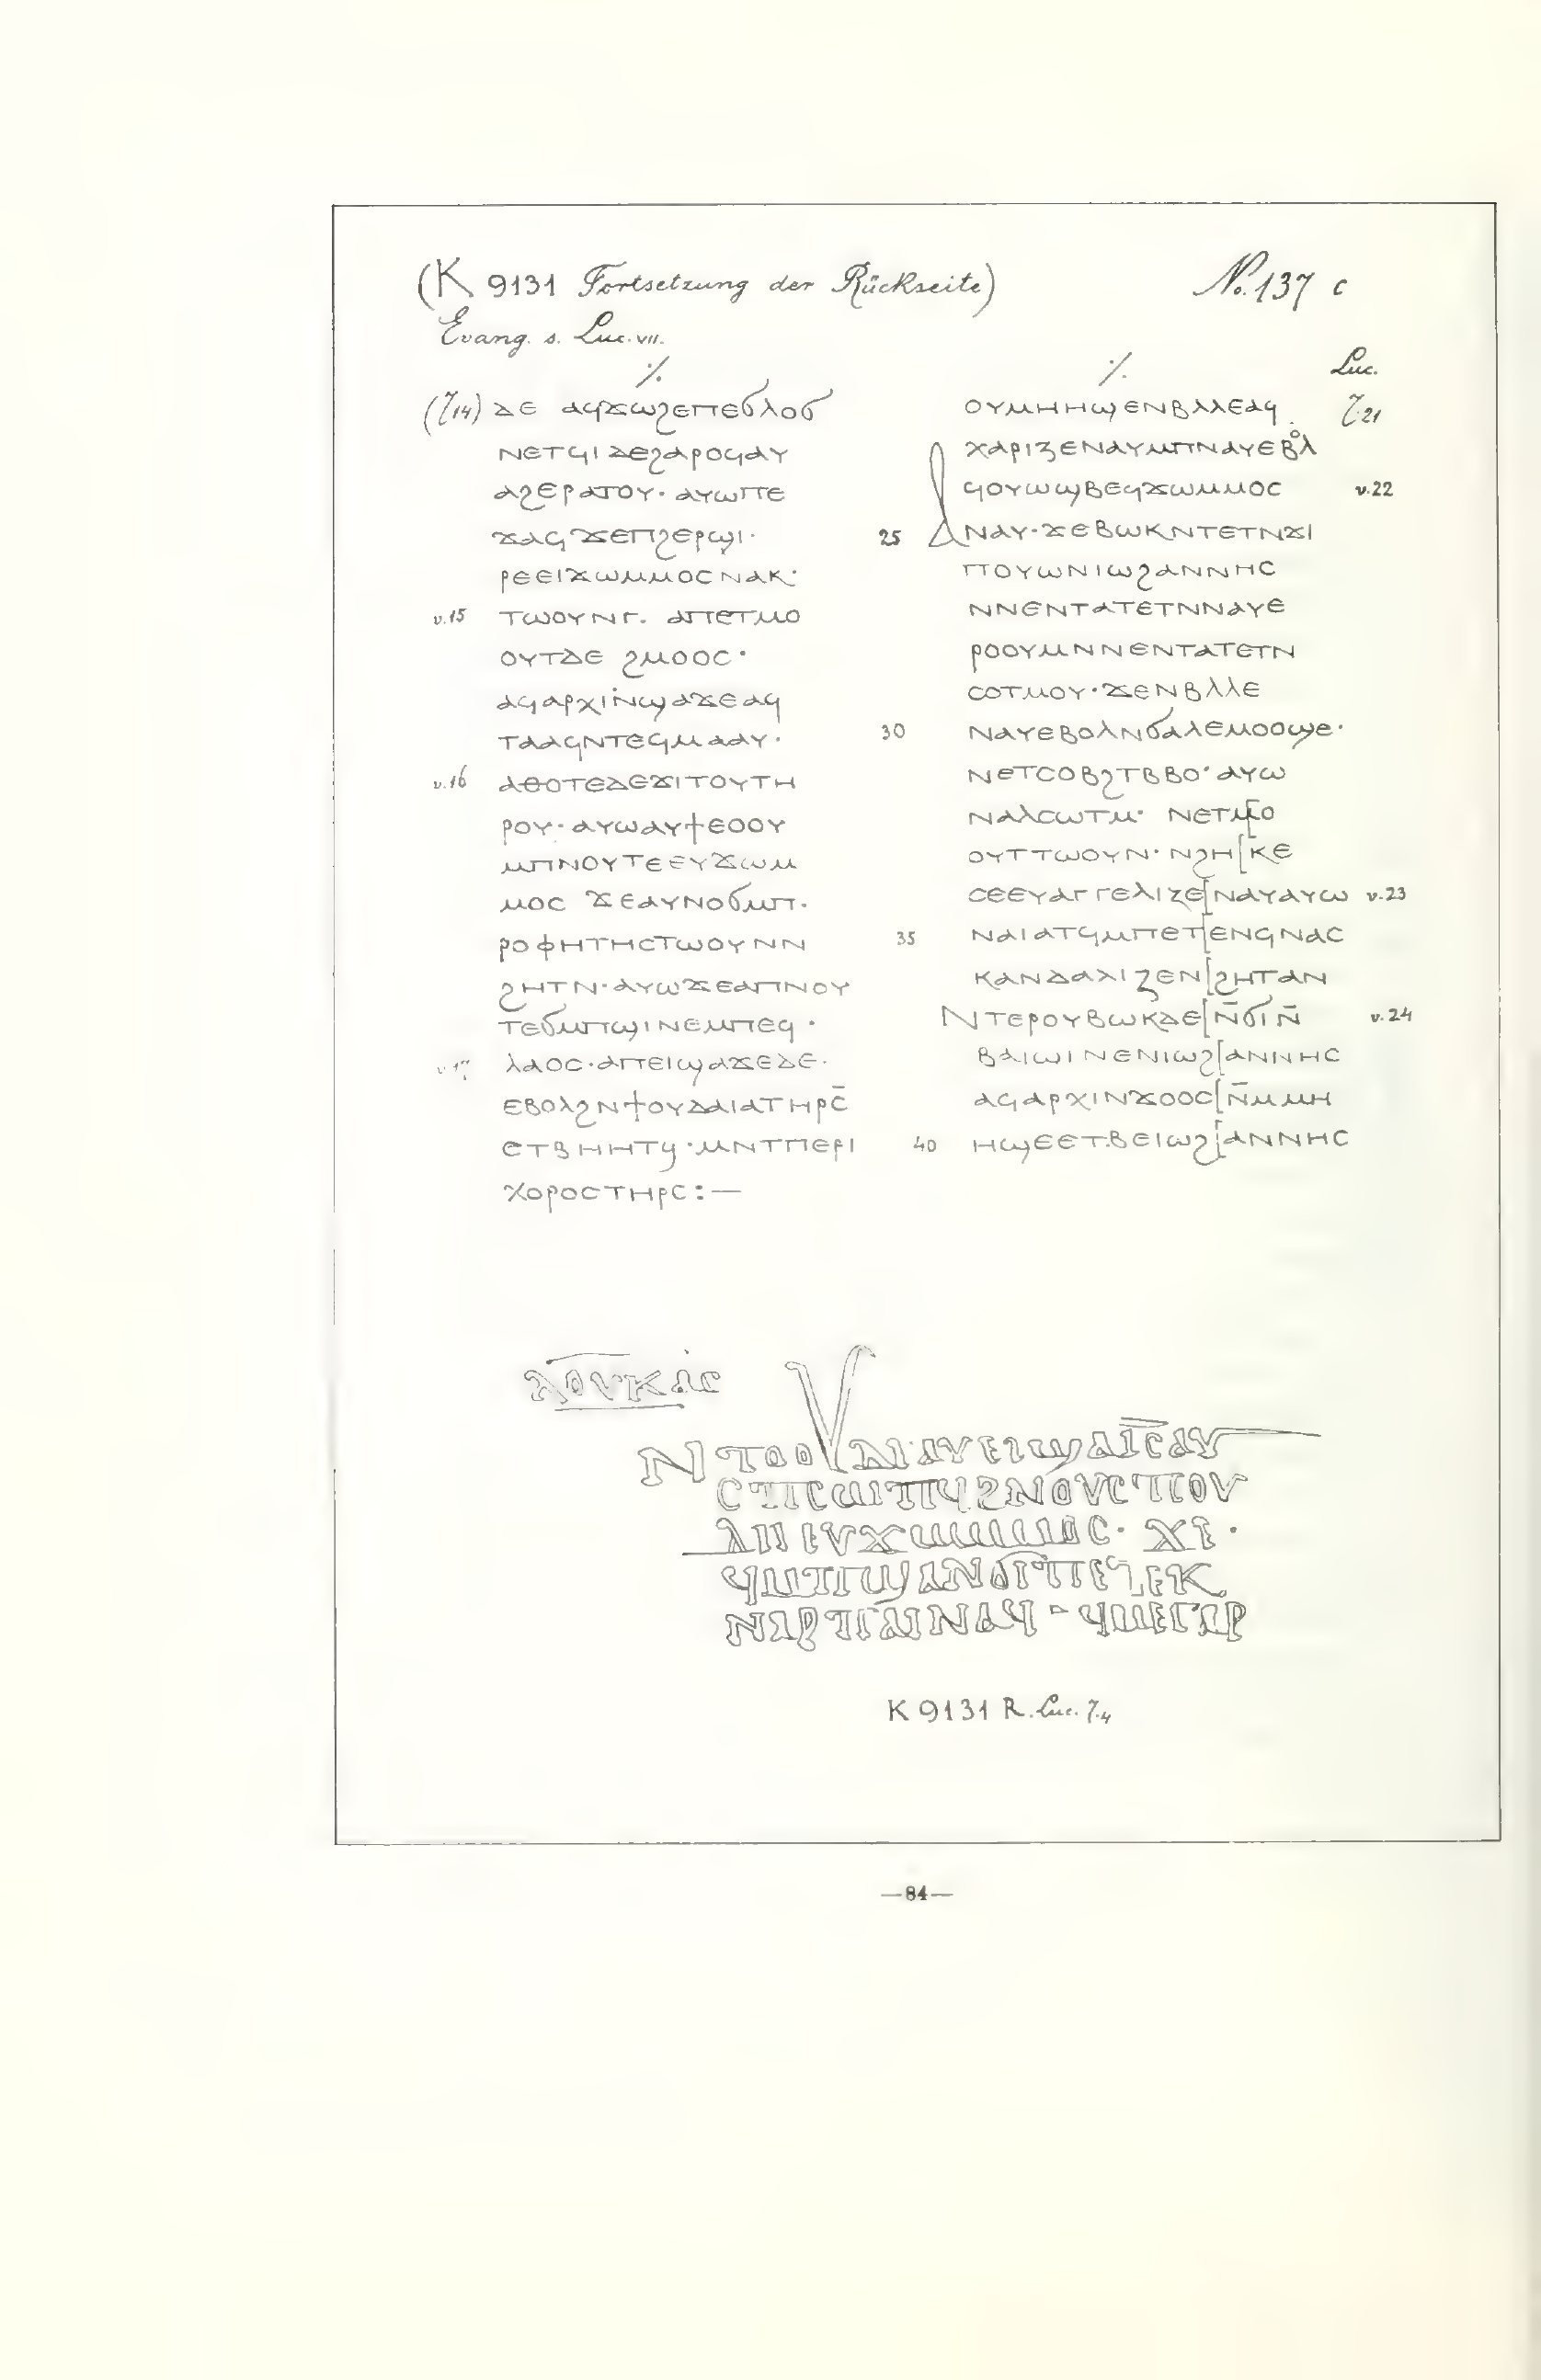 (K 9131 Fortsetzung der Rückseite) No. 137 c
Evang. s. Luc. VII.
⁒
(7,14) ⲇⲉ ⲁϥϫⲱϩⲉⲡⲉϭⲗⲟϭ
ⲛⲉⲧϥⲓⲇⲉϩⲁⲣⲟϥⲁⲩ
ⲁϩⲉⲣⲁⲧⲟⲩ· ⲁⲩⲱⲡⲉ
ϫⲁϥϫⲉⲡϩⲉⲣϣⲓ·
ⲣⲉⲉⲓϫⲱⲙⲙⲟⲥⲛⲁⲕ·
v.15 ⲧⲱⲟⲩⲛⲅ. ⲁⲡⲉⲧⲙⲟ
ⲟⲩⲧⲇⲉ ϩⲙⲟⲟⲥ·
ⲁϥⲁⲣⲭⲓⲛϣⲁϫⲉⲁϥ
ⲧⲁⲁϥⲛⲧⲉϥⲙⲁⲁⲩ·
v.16 ⲁⲑⲟⲧⲉⲇⲉϫⲓⲧⲟⲩⲧⲏ
ⲣⲟⲩ· ⲁⲩⲱⲁⲩϯⲉⲟⲟⲩ
ⲙⲡⲛⲟⲩⲧⲉⲉⲩϫⲱⲙ
ⲙⲟⲥ ϫⲉⲁⲩⲛⲟϭⲙⲡ.
ⲣⲟⲫⲏⲧⲏⲥⲧⲱⲟⲩⲛⲛ
ϩⲏⲧⲛ·ⲁⲩⲱϫⲉⲁⲡⲛⲟⲩ
ⲧⲉϭⲙⲡϣⲓⲛⲉⲙⲡⲉϥ·
v.17 ⲗⲁⲟⲥ·ⲁⲡⲉⲓϣⲁϫⲉⲇⲉ·
ⲉⲃⲟⲗϩⲛϯⲟⲩⲇⲁⲓⲁⲧⲏⲣⲥ̄
ⲉⲧⲃⲏⲏⲧϥ·ⲙⲛⲧⲡⲉⲣⲓ
ⲭⲟⲣⲟⲥⲧⲏⲣⲥ:—
⁒ Luc.
ⲟⲩⲙⲏⲏϣⲉⲛⲃⲗⲗⲉⲁϥ 7.21
ⲭⲁⲣⲓⲍⲉⲛⲁⲩⲙⲡⲛⲁⲩⲉⲃⲟⲗ
ϥⲟⲩⲱϣⲃⲉϥϫⲱⲙⲙⲟⲥ v.22
25 ⲁⲛⲁⲩ·ϫⲉⲃⲱⲕⲛⲧⲉⲧⲛϫⲓ
ⲡⲟⲩⲱⲛⲓⲱϩⲁⲛⲛⲏⲥ
ⲛⲛⲉⲛⲧⲁⲧⲉⲧⲛⲛⲁⲩⲉ
ⲣⲟⲟⲩⲙⲛⲛⲉⲛⲧⲁⲧⲉⲧⲛ
ⲥⲟⲧⲙⲟⲩ·ϫⲉⲛⲃⲗⲗⲉ
30 ⲛⲁⲩⲉⲃⲟⲗⲛϭⲁⲗⲉⲙⲟⲟϣⲉ·
ⲛⲉⲧⲥⲟⲃϩⲧⲃⲃⲟ·ⲁⲩⲱ
ⲛⲁⲗⲥⲱⲧⲙ· ⲛⲉⲧⲙ[ⲟ
ⲟⲩⲧⲧⲱⲟⲩⲛ·ⲛϩⲏ[ⲕⲉ
ⲥⲉⲉⲩⲁⲅⲅⲉⲗⲓⲍⲉ[ⲛⲁⲩⲁⲩⲱ v.23
35 ⲛⲁⲓⲁⲧϥⲙⲡⲉⲧ[ⲉⲛϥⲛⲁⲥ
ⲕⲁⲛⲇⲁⲗⲓⲍⲉⲛ[ϩⲏⲧⲁⲛ
ⲛⲧⲉⲣⲟⲩⲃⲱⲕⲇⲉ[ⲛ̄ϭⲓⲛ̄ v.24
ⲃⲁⲓϣⲓⲛⲉⲛⲓⲱϩ[ⲁⲛⲛⲏⲥ
ⲁϥⲁⲣⲭⲓⲛϫⲟⲟⲥ[ⲛ̄ⲙⲙⲏ
40 ⲏϣⲉⲉⲧⲃⲉⲓⲱϩ[ⲁⲛⲛⲏⲥ
ⲗⲟⲩⲕⲁⲥ
ⲛⲧⲟⲟⲩⲇⲉⲁⲩⲉⲓϣⲁⲓ̅ⲥ̅ⲁⲩ
ⲥⲡⲥⲱⲡϥϩⲛⲟⲩⲥⲡⲟⲩ
ⲇⲏⲉⲩϫⲱⲙⲙⲟⲥ· ϫⲉ·
ϥⲙⲡϣⲁⲛϭⲓⲡⲉⲧⲉⲕ
ⲛⲁⲣⲡⲁⲓⲛⲁϥ - ϥⲙⲉⲅⲁⲣ
K 9131 R. Luc. 7.4
—84—